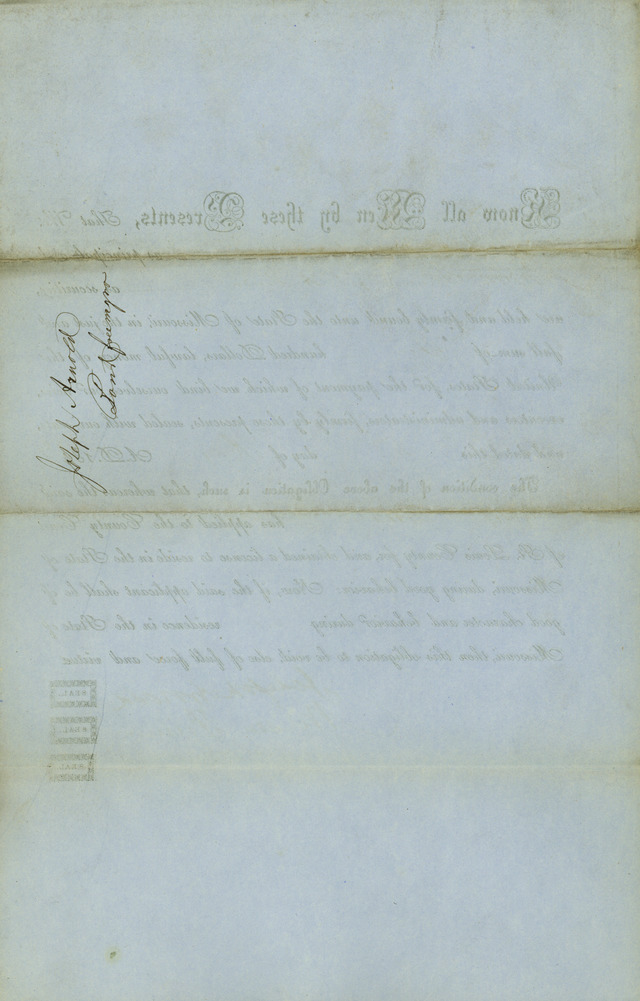 Joseph Arnold
Bond freemen
Know all Men by these Presents, That We
as principal
as securities
are held and firmly bound unto the State of Missouri, in the just
full sum of hundred Dollars, lawful money of the
United States, for the payment of which we bind ourselves, our
executors and administrators, firmly by these presents, sealed with our
and dated this day of A. D. 1
The condition of the above Obligation is such, that whereas the said
has applied to the County Court
of St. Louis County for, and obtained a license to reside in the State of
Missouri, during good behavior: Now, if the said applicant shall be of
good character and behavior during residence in the State of
Missouri, then this obligation to be void, else of full force and virtue.
SEAL.
SEAL.
SEAL.